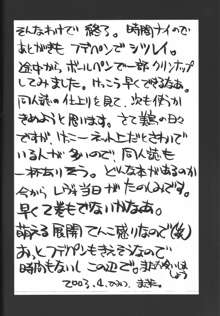 そんなわけで 終了。時間ナイので
あとがきも フデペンで シツレイ。
途中から ボールペンで一部 クリンナップ
してみました。けっこう早くできるなあ。
同人誌の仕上りを見て、次も使うか
きめようと思います。さて 鷲の日々
ですが、けっこーネット上だとさわいで
いる人が 多いので 同人誌も
一杯だろう。どんな本があるのか
今から 当日が たのしみです。
早くて巻もでないかなあ。
萌える展開 てんこ盛りなので(笑)
あ、と フデペンもきえそうなので
時間もないし この辺で。またお会いしましょう
2003.4.